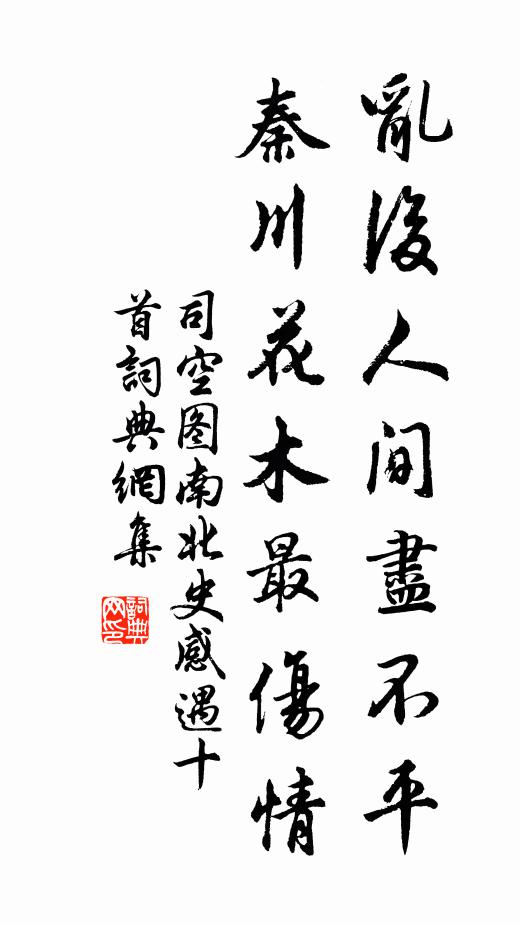 亂後人间盡不平
秦川花木最傷情
司空图南北史感遇十
首詞典網集
詞典
网印